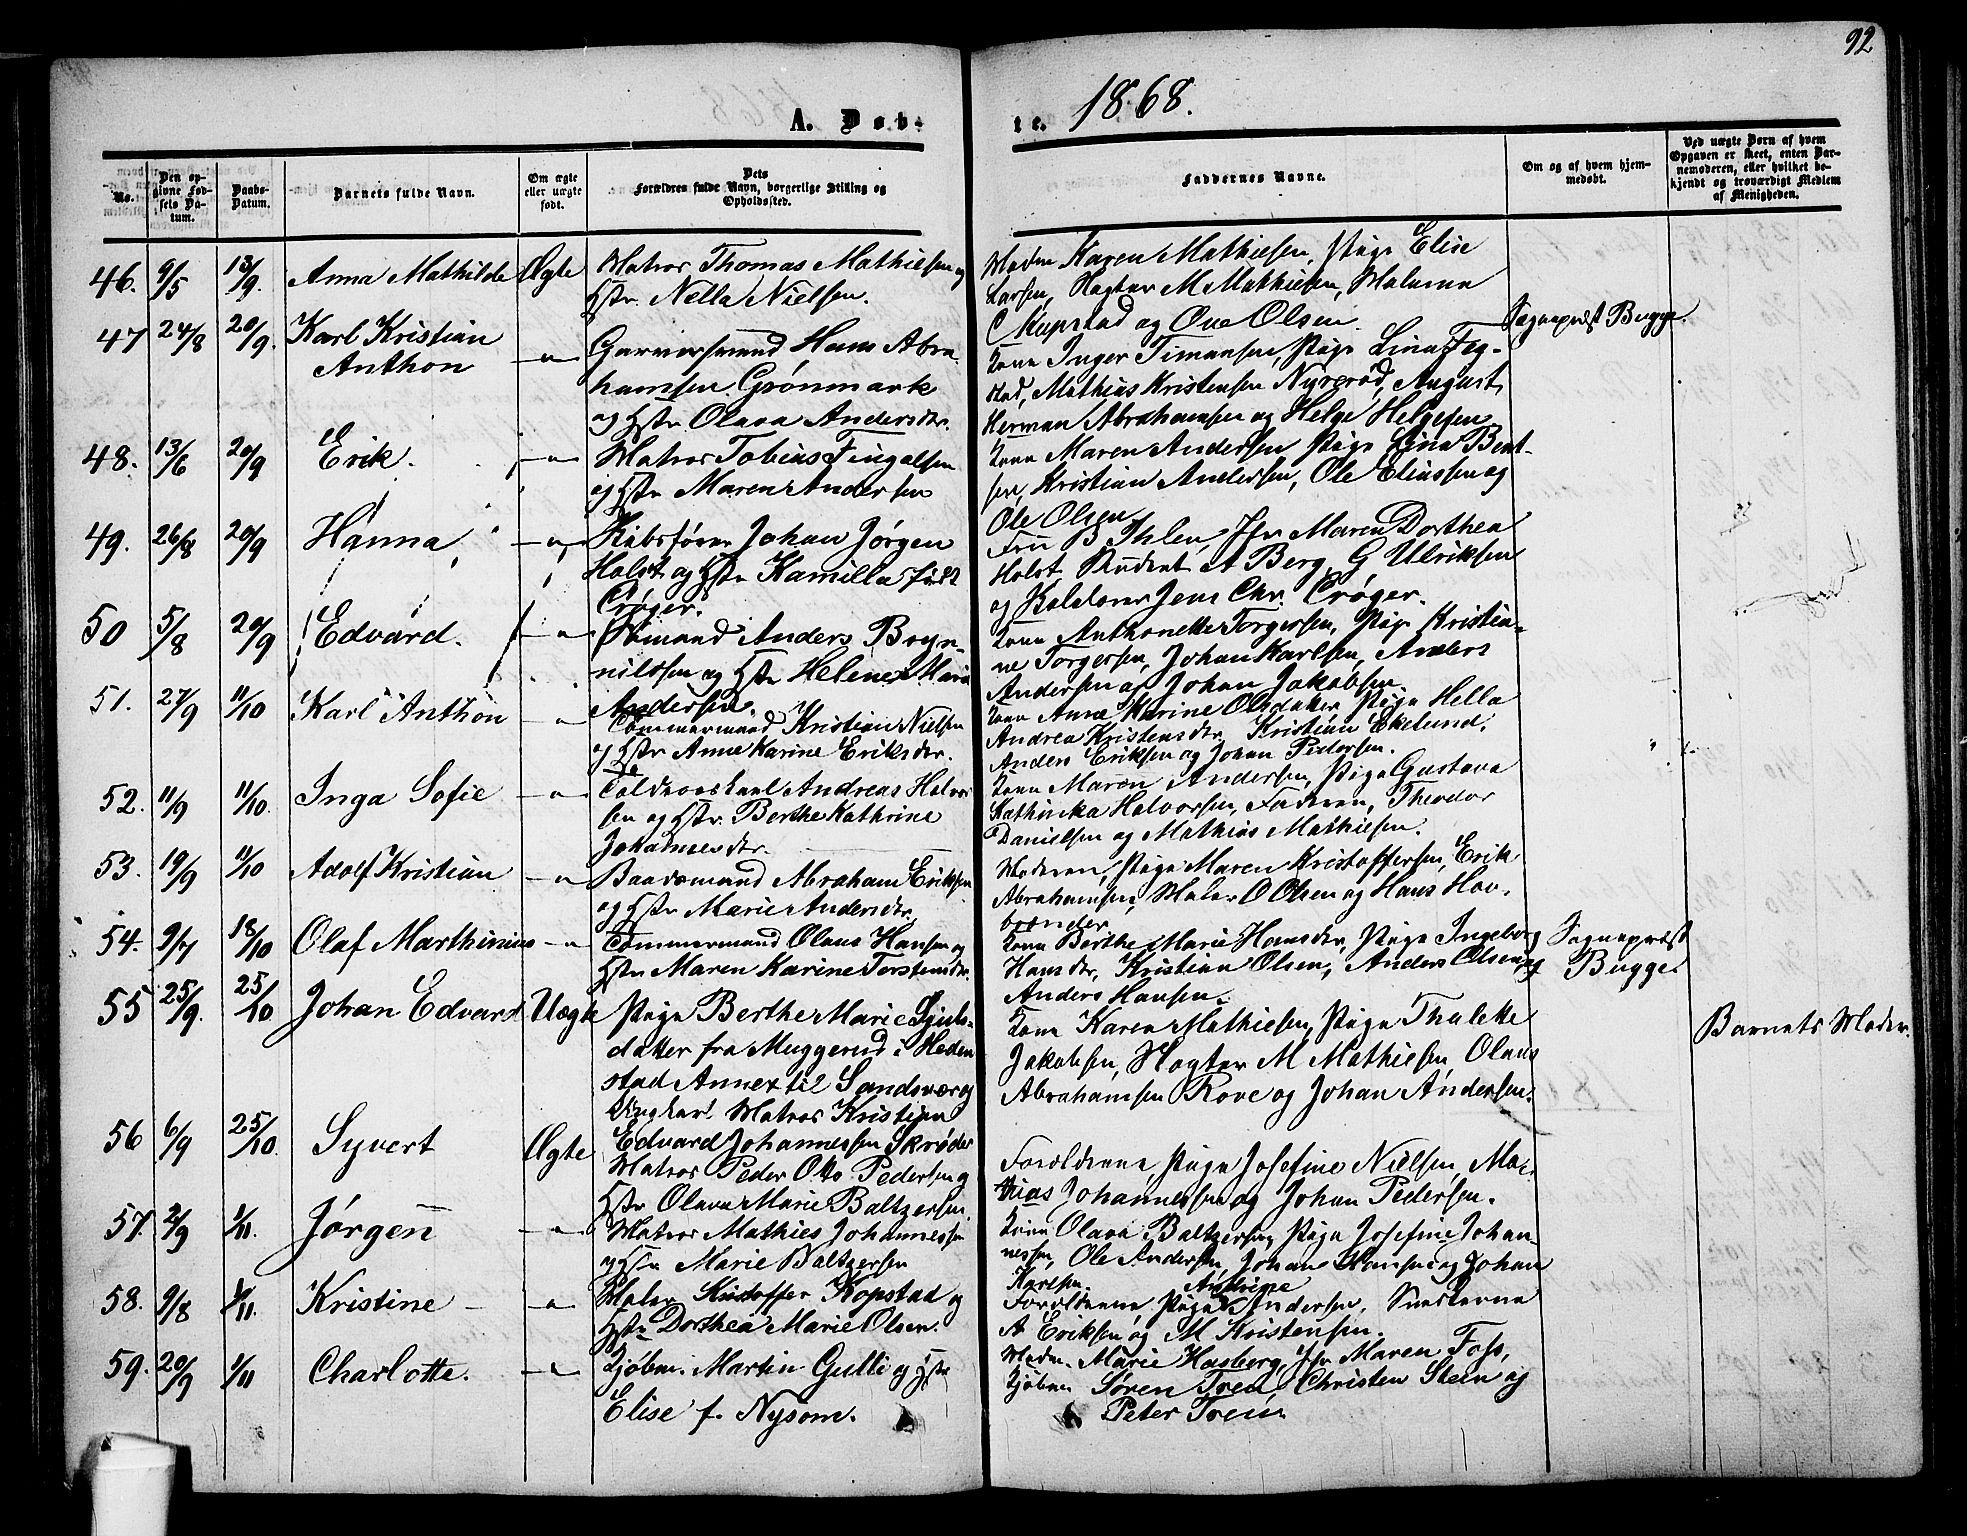 92
A. Døb-
te. 1868.
No.
Den op-
givne Fød-
sels Da-
tum.
Daabs-
Datum.
Barnets fulde Navn.
Om ægte
eller uægte
født.
Dets
Forældres fulde Navn, borgerlige Stilling og
Opholdssted.
Faddernes Navne.
Om og af hvem hjem-
medøbt.
Ved uægte Børn af hvem
Opgaven er skeet, enten Bar-
nemoderen, eller hvilket be-
kjendt og troværdigt Medlem
af Menigheden.
46. 9/5 13/9. Anna Mathilde Ægte Matros Thomas Mathiesen og
Hstr. Nella Nielsen.
Moder Karen Mathiesen, Pige Elise
Larsen, M Mathiesen,
Kupstad og Ove Olsen.
47 24/8 20/9. Karl Kristian
Anthon
Garversvend Hans Abra-
hamsen Grönmark
og Hstr. Olava Andersdtr.
Kone Inger Timansen, Pige Lina Feg-
stad, Mathias Kristensen Nyrerød, August
Herman Abrahamsen og Helge Helgesen
Sognepræst Bugge.
48. 13/6 20/9 Erik. Matros Tobias Fingalsen
og Hstr Maren Andersen
Kone Maren Andersen Pige Lina Bent-
sen, Kristian Andersen, Ole Eliassen og
Ole Olsen
49. 26/8 20/9 Hanna, Skibsfører Johan Jørgen
Holst og Hstr Kamilla født
Crøger.
Fru B Ihlen, Jfr Maren Dorthea
Holst Student A Berg, G Ulriksen
og Jens Chr. Crøger.
50 5/8 20/9 Edvard. Sømand Anders Bryn-
nilssen og Hstr Helene Maria
Andersen.
Kone Anthonette Torgersen, Pige Kristia-
ne Torgersen, Johan Karlsen, Anders
Andersen og Johan Jakobsen.
51. 27/9 11/10 Karl Anthon Tømmermand Kristian Nielsen
og Hstr Anne Karine Eriksdtr.
Kone Anne Karine Olsdatter, Pige Hella
Andrea Kristensdtr, Kristian Ekelund,
Anders Eriksen og Johan Pedersen.
52. 11/9 11/10. Inga Sofie Toldroerskarl Andreas Halvor
sen og Hstr. Berthe Kathrine
Johannesdtr.
Kone Maren Andersen, Pige Gustava
Kathinka Halvorsen, Faderen, Theodor
Danielsen og Mathias Mathiesen.
53. 19/9 11/10 Adolf Kristian Baadsmand Abraham Eriksen
og Hstr Marie Andersdtr.
Moderen, Pige Maren Kristoffersen, Erik
Abrahamsen, Maler O Olsen og Hans Hav-
brønder
54. 9/7 18/10 Olaf Marthinius Tømmermand Olaus Hansen og
Hstr Maren Karine Torstensdtr.
Kone Berthe Marie Hansdtr, Pige Ingeborg
Hansdtr, Kristian Olsen, Anders Olsen og
Anders Hansen.
Sognepræst
Bugge.
55 25/9. 25/10. Johan Edvard Uægte Pige Berthe Marie Gjuls-
datter fra Muggerud i Heden
stad Annex til Sandsvær og
Ungkarl Matros Kristian
Edvard Johannessen Skrøder
Kone Karen Mathiesen, Pige Thalette
Jakobsen, M Mathiesen, Olaus
Abrahamsen Rove og Johan Andersen.
Barnets Moder.
56 6/9 25/10. Syvert Ægte Matros Peder Otto Pedersen og
Hstr Olava Marie Baltzersen.
Forældrene, Pige Josefine Nielsen, Ma-
thias Johannessen og Johan Pedersen.
57. 2/9 1/11. Jørgen Matros Mathies Johannessen
og Hstr Marie Baltzersen
Kone Olava Baltzersen, Pige Josefine Johan-
nessen, Ole Andersen, Johan Hansen og Johan
Karlsen
58. 9/8 1/11. Kristine Maler Kristoffer Kopstad og
Hstr Dorthea Marie Olsen.
Forældrene, Pige Andersen, Snedkerne
A Eriksen og M Kristensen.
59. 20/9 1/11 Charlotte. Kjøbm. Martin Gulli og Hstr
Elise f. Nysom.
Moder Marie Hasberg, Jfr Maren Foss,
Kjøbm Søren Tren, Christen Steen og
Peter Tren